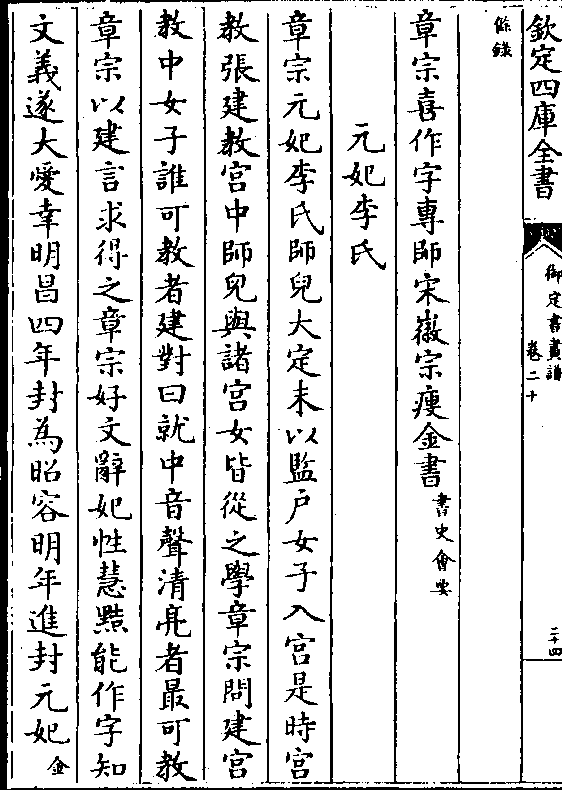 欽定四庫全書
御定書畫譜
卷二十
二十四
餘錄
章宗喜作字專師宋徽宗瘦金書書史會要
元妃李氏
章宗元妃李氏師兒大定末以監户女子入宫是時宫
教張建教宫中師兒與諸宫女皆從之學章宗問建宫
教中女子誰可教者建對曰就中音聲清亮者最可教
章宗以建言求得之章宗好文辭妃性慧黠能作字知
文義遂大愛幸明昌四年封為昭容明年進封元妃金